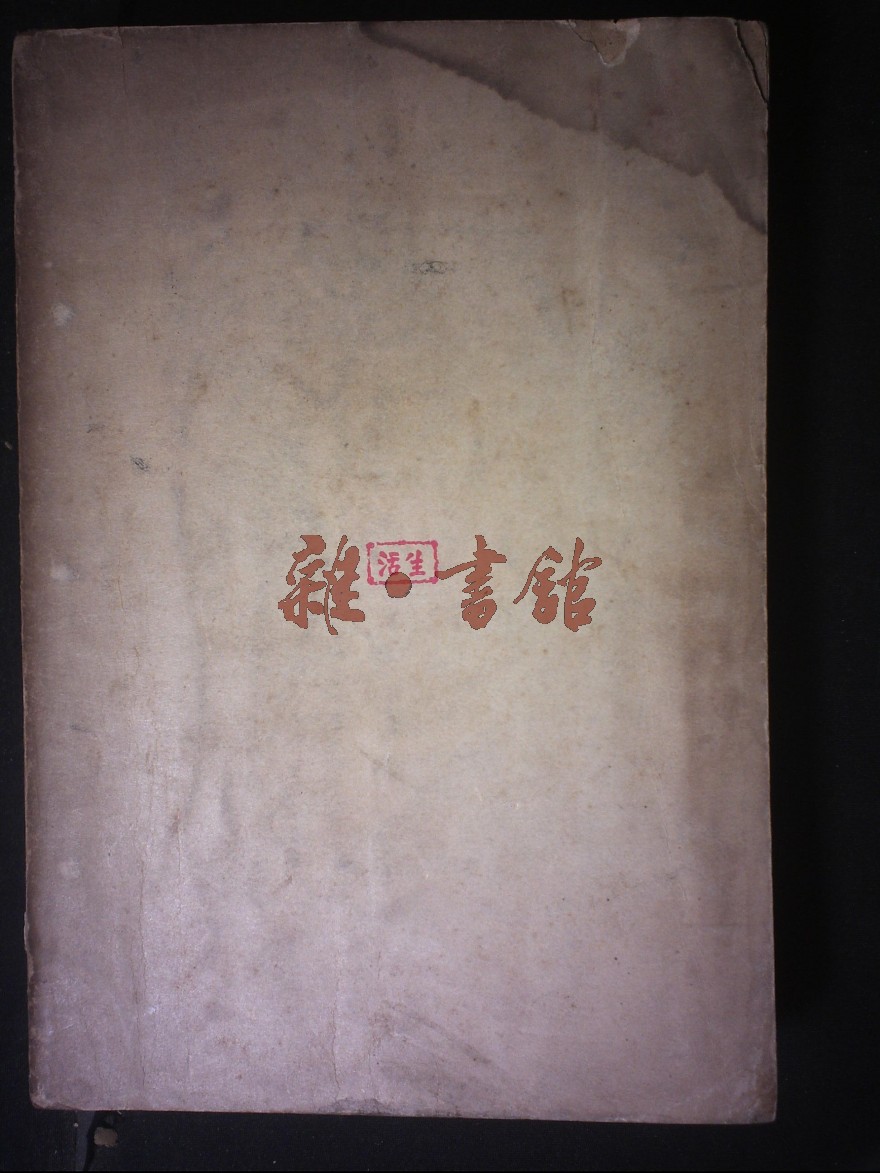 雜·書館
生活